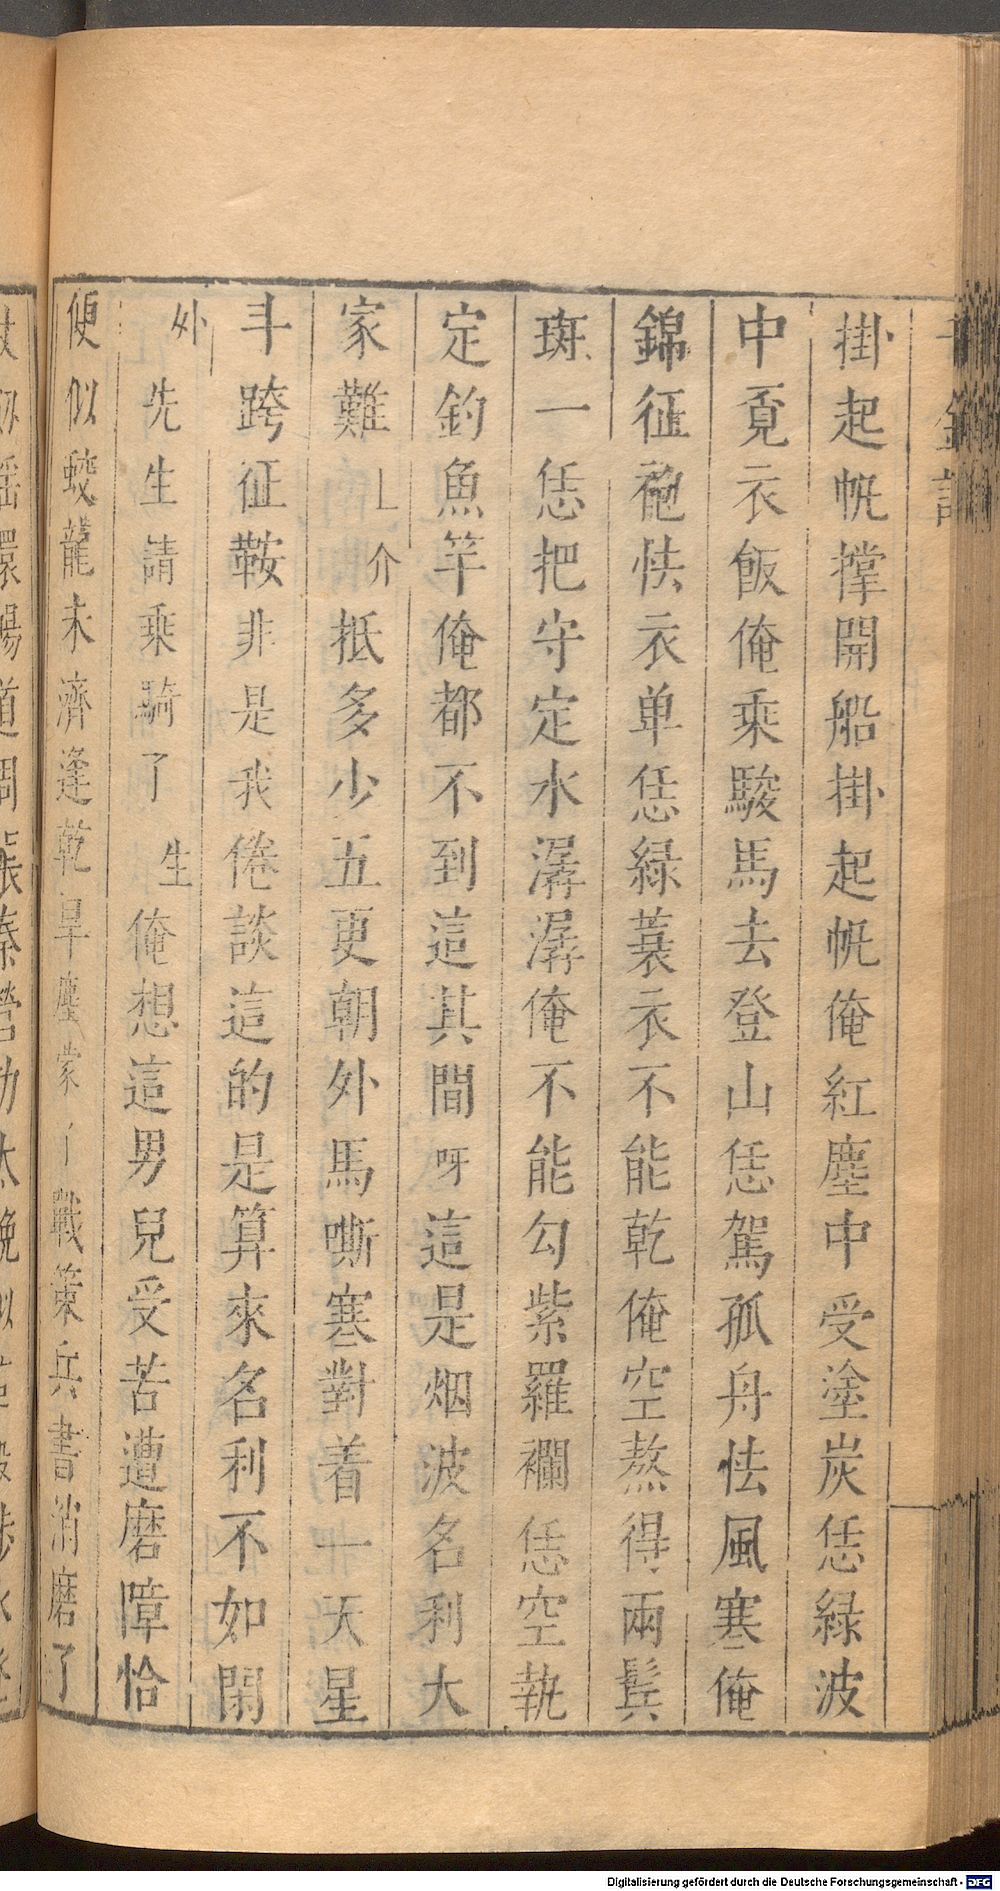 千金記
掛起帆撑開船掛起帆俺紅塵中受塗炭恁緑波
中覔衣飯俺乘駿馬去登山恁駕孤舟怯風寒俺
錦征袍怯衣单恁緑蓑衣不能乾俺空熬得兩鬂
斑一恁把守定水潺潺俺不能勾紫羅襴恁空執
定釣魚竿俺都不到這其間呀這是烟波名利大
家難介抵多少五更朝外馬嘶寒對着一天星
斗跨征鞍非是我倦談這的是算來名利不如閑
外先生請乘騎了生俺想這男兒受苦遭磨障恰
便似蛟龍未濟逢乾旱塵蒙了戰策兵書消磨了
Digitalisierung gefördert durch die Deutsche Forschungsgemeinschaft - DFG